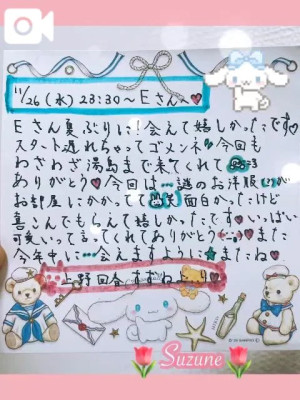 11/26(水) 23:30〜Eさんへ♥
Eさん夏ぶりに!会えて嬉しかったです♥
スタート遅れちゃってゴメンネ 今回も
わざわざ湯島まで来てくれて
ありがとう♥今回は…謎のお洋服が
お部屋にかかってて 面白かったけど
喜んでもらえて嬉しかったです いっぱい
可愛いって言ってくれてありがとう また
今年中に…会えますように★またね♥
上野回春 すずねより
Suzune